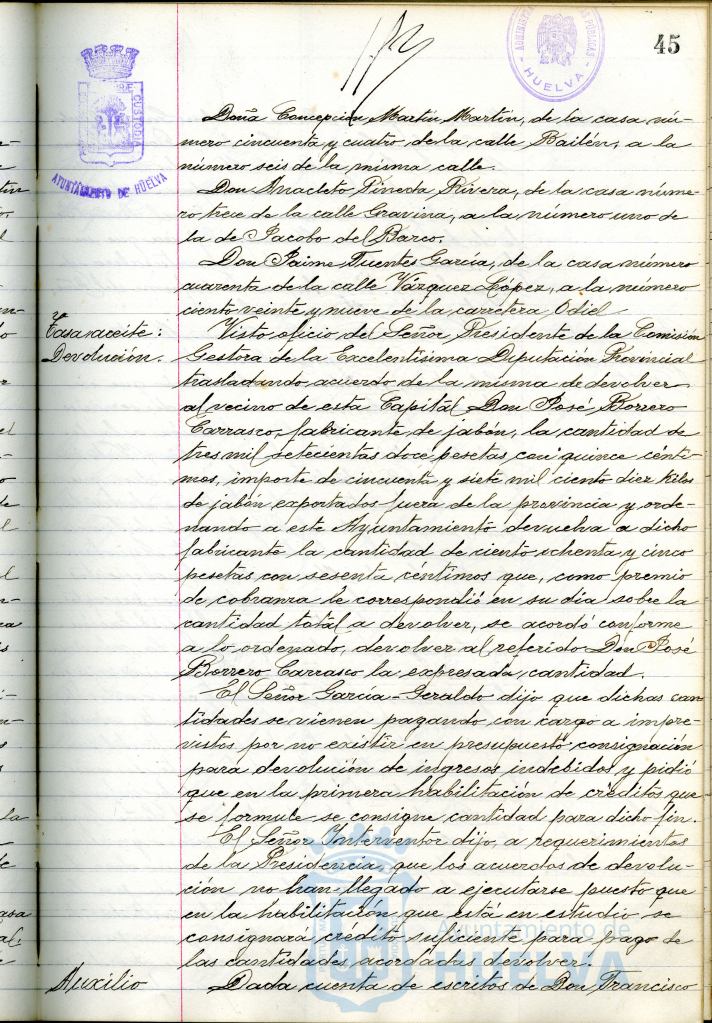 45
HUELVA
CUSTODIA
AYUNTAMIENTO DE HUELVA
Doña Concepción Martín Martín, de la casa nú-
mero cincuenta y cuatro de la calle Bailén, a la
número seis de la misma calle.
Don Anacleto Pineda Rivera, de la casa núme-
ro trece de la calle Gravina, a la número uno de
la de Jacobo del Barco.
Don Jaime Fuentes García, de la casa número
cuarenta de la calle Vázquez López, a la número
ciento veinte y nueve de la carretera Odiel.
Tasa aceite:
Devolución.
Visto oficio del Señor Presidente de la Comisión
Gestora de la Excelentísima Diputación Provincial
trasladando acuerdo de la misma de devolver
al vecino de esta Capital Don José Borrero
Carrasco, fabricante de jabón, la cantidad de
tres mil setecientas doce pesetas con quince cénti-
mos, importe de cincuenta y siete mil ciento diez kilos
de jabón exportados fuera de la provincia y orde-
nando a este Ayuntamiento devuelva a dicho
fabricante la cantidad de ciento ochenta y cinco
pesetas con sesenta céntimos que, como premio
de cobranza le correspondió en su día sobre la
cantidad total a devolver, se acordó conforme
a lo ordenado, devolver al referido Don José
Borrero Carrasco la expresada cantidad.
El Señor García-Geraldo dijo que dichas can
tidades se vienen pagando con cargo a impre-
vistos por no existir en presupuesto consignación
para devolución de ingresos indebidos y pidió
que en la primera habilitación de créditos que
se formule se consigne cantidad para dicho fin.
El Señor Interventor dijo, a requerimientos
de la Presidencia, que los acuerdos de devolu-
ción no han llegado a ejecutarse puesto que
en la habilitación que está en estudio se
consignará crédito suficiente para pago de
las cantidades acordadas devolver.
Auxilio
Dada cuenta de escritos de Don Francisco
Ayuntamiento de
HUELVA